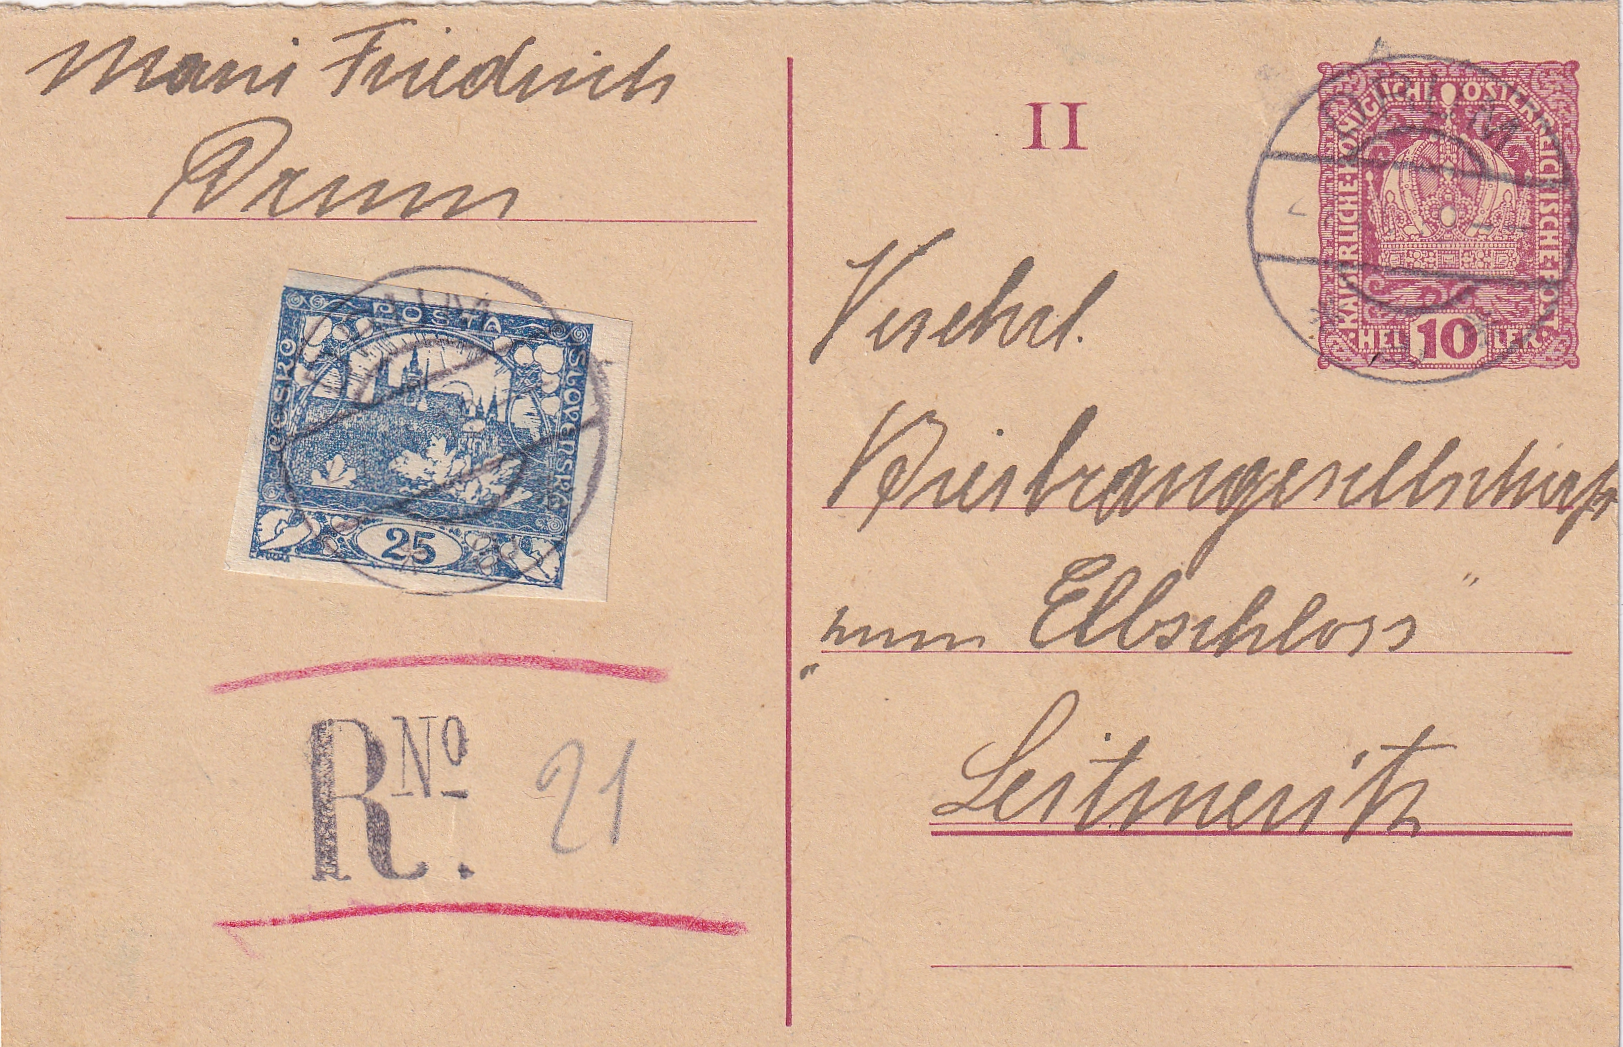 Mari Friedrich
Drum
POŠTA
ČESKO
SLOVENSKÁ
25
R No. 21
II
KAISERLICHE KÖNIGLICHE ÖSTERREICHISCHE POST
HELLER
10
DRUM
Verehrl.
Bierbrangesellschaft
"zum Elbschloss"
Leitmeritz